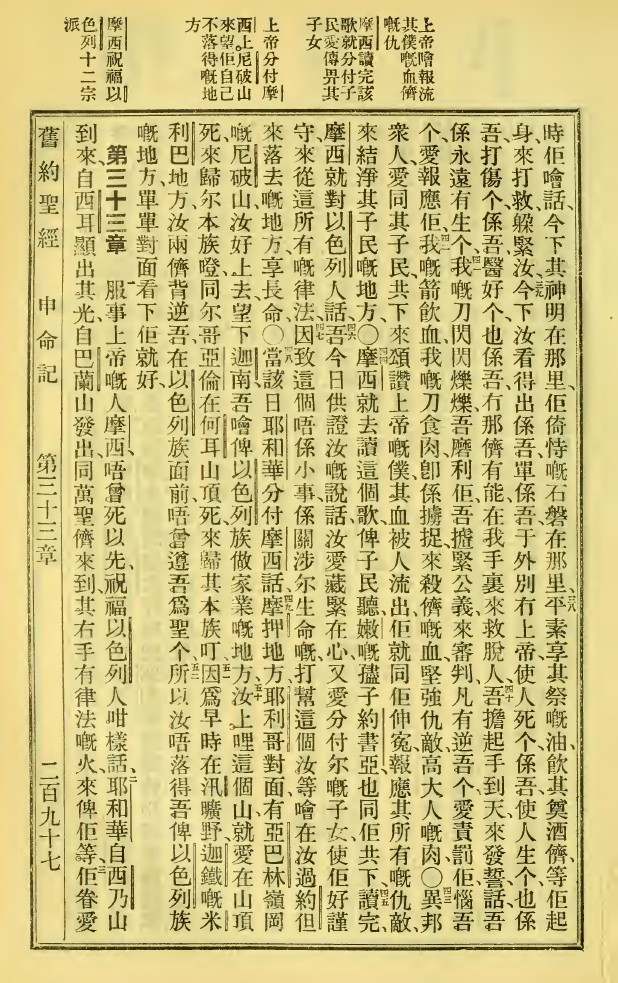 上帝噲報流
其僕嘅血儕
嘅仇
摩西讀完該
歌就分付子
民愛傳畀其
子女
上帝分付摩
西上尼破山
來望佢自己
不落得嘅地
方
摩西祝福以
色列十二宗
派
時佢噲話、今下其神明在那里、佢倚恃嘅石磐在那里、三八平素享其祭嘅油、飲其奠酒儕、等佢起
身來打救躲緊汝、三九今下汝看得出係吾單係吾、于外別冇上帝、使人死个係吾、使人生个也係
吾、打傷个係吾、醫好个也係吾、冇那儕有能在我手裏來救脫人、四十吾擔起手到天、來發誓話、吾
係永遠有生个、四一我嘅刀閃閃爍爍吾磨利佢、吾揸緊公義來審判、凡有逆吾个愛責罰佢、惱吾
个愛報應佢、四二我嘅箭飲血、我嘅刀食肉、卽係擄捉來殺儕嘅血、堅強仇敵、高大人嘅肉、〇四三異邦
衆人、愛同其子民共下來頌讚上帝嘅僕、其血被人流出、佢就同佢伸寃、報應其所有嘅仇敵、
來結淨其子民嘅地方、〇四四摩西就去讀這個歌俾子民聽、嫩嘅孻子約書亞也同佢共下、四五讀完、
摩西就對以色列人話、四六吾今日供證汝嘅說話、汝愛藏緊在心、又愛分付尔嘅子女、使佢好謹
守來從這所有嘅律法、四七因致這個唔係小事、係關涉尔生命嘅、打幫這個汝等噲在汝過約但
來落去嘅地方、享長命、〇四八當該日耶和華分付摩西話、四九摩押地方、耶利哥對面、有亞巴林嶺岡
嘅尼破山、汝好上去、望下迦南、吾噲俾以色列族做家業嘅地方、五十汝上哩這個山、就愛在山頂
死、來歸尔本族、瞪同尔哥亞倫在何耳山頂死、來歸其本族叮、五一因爲早時在汛曠野、迦鐵嘅米
利巴地方、汝兩儕背逆吾、在以色列族面前、唔曾遵吾爲聖个、五二所以汝唔落得吾俾以色列族
嘅地方、單單對面看下佢就好、
第三十三章 一服事上帝嘅人摩西、唔曾死以先、祝福以色列人咁樣話、二耶和華自西乃山
到來、自西耳顯出其光、自巴蘭山發出、同萬聖儕來到、其右手有律法嘅火來俾佢等、三佢眷愛
舊約聖經 申命記 第三十三章 二百九十七